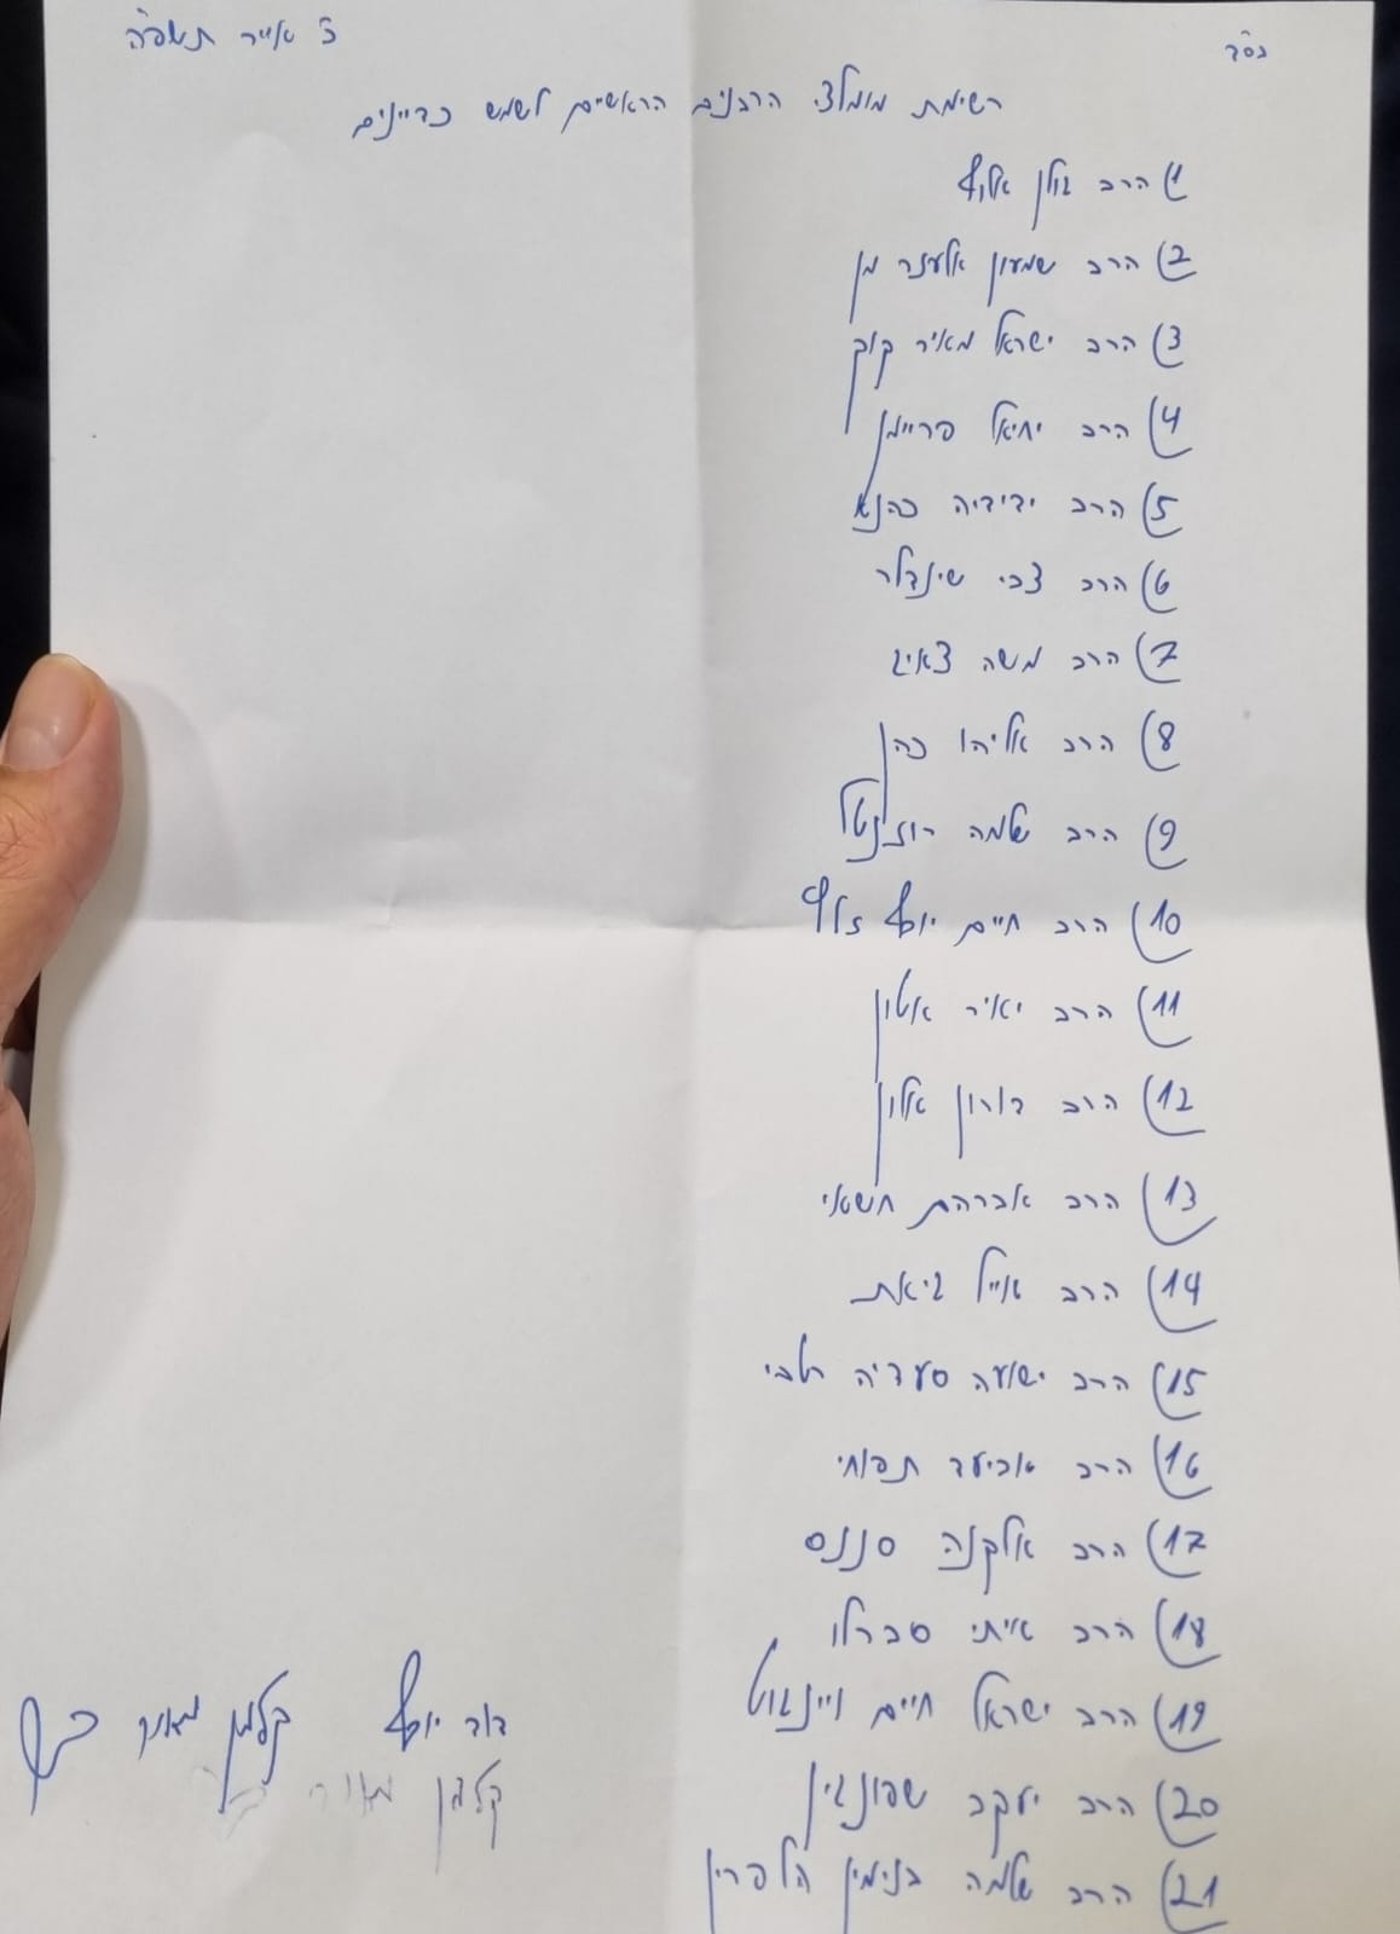 בס"ד
כ' אייר תשפ"ה
רשימת מומלצי הרבנים הראשיים לשמש כדיינים
1) הרב גולן אלוף
2) הרב שמעון אלעזר מן
3) הרב ישראל מאיר קוק
4) הרב יחיאל פריימן
5) הרב ידידיה כהנא
6) הרב צבי שינדלר
7) הרב משה צאיג
8) הרב אליהו כהן
9) הרב שלמה רוזנטל
10) הרב חיים יוסף זולף
11) הרב יאיר אטון
12) הרב דורון אלון
13) הרב אברהם חשאי
14) הרב אייל גיאת
15) הרב ישועה סעדיה רטבי
16) הרב אביעד תפוחי
17) הרב אלקנה סננס
18) הרב איתי סברלו
19) הרב ישראל חיים ויינגוט
20) הרב יעקב שפונגין
21) הרב שלמה בנימין הלפרין
דוד יוסף קלמן מאיר בר
קלמן מאיר